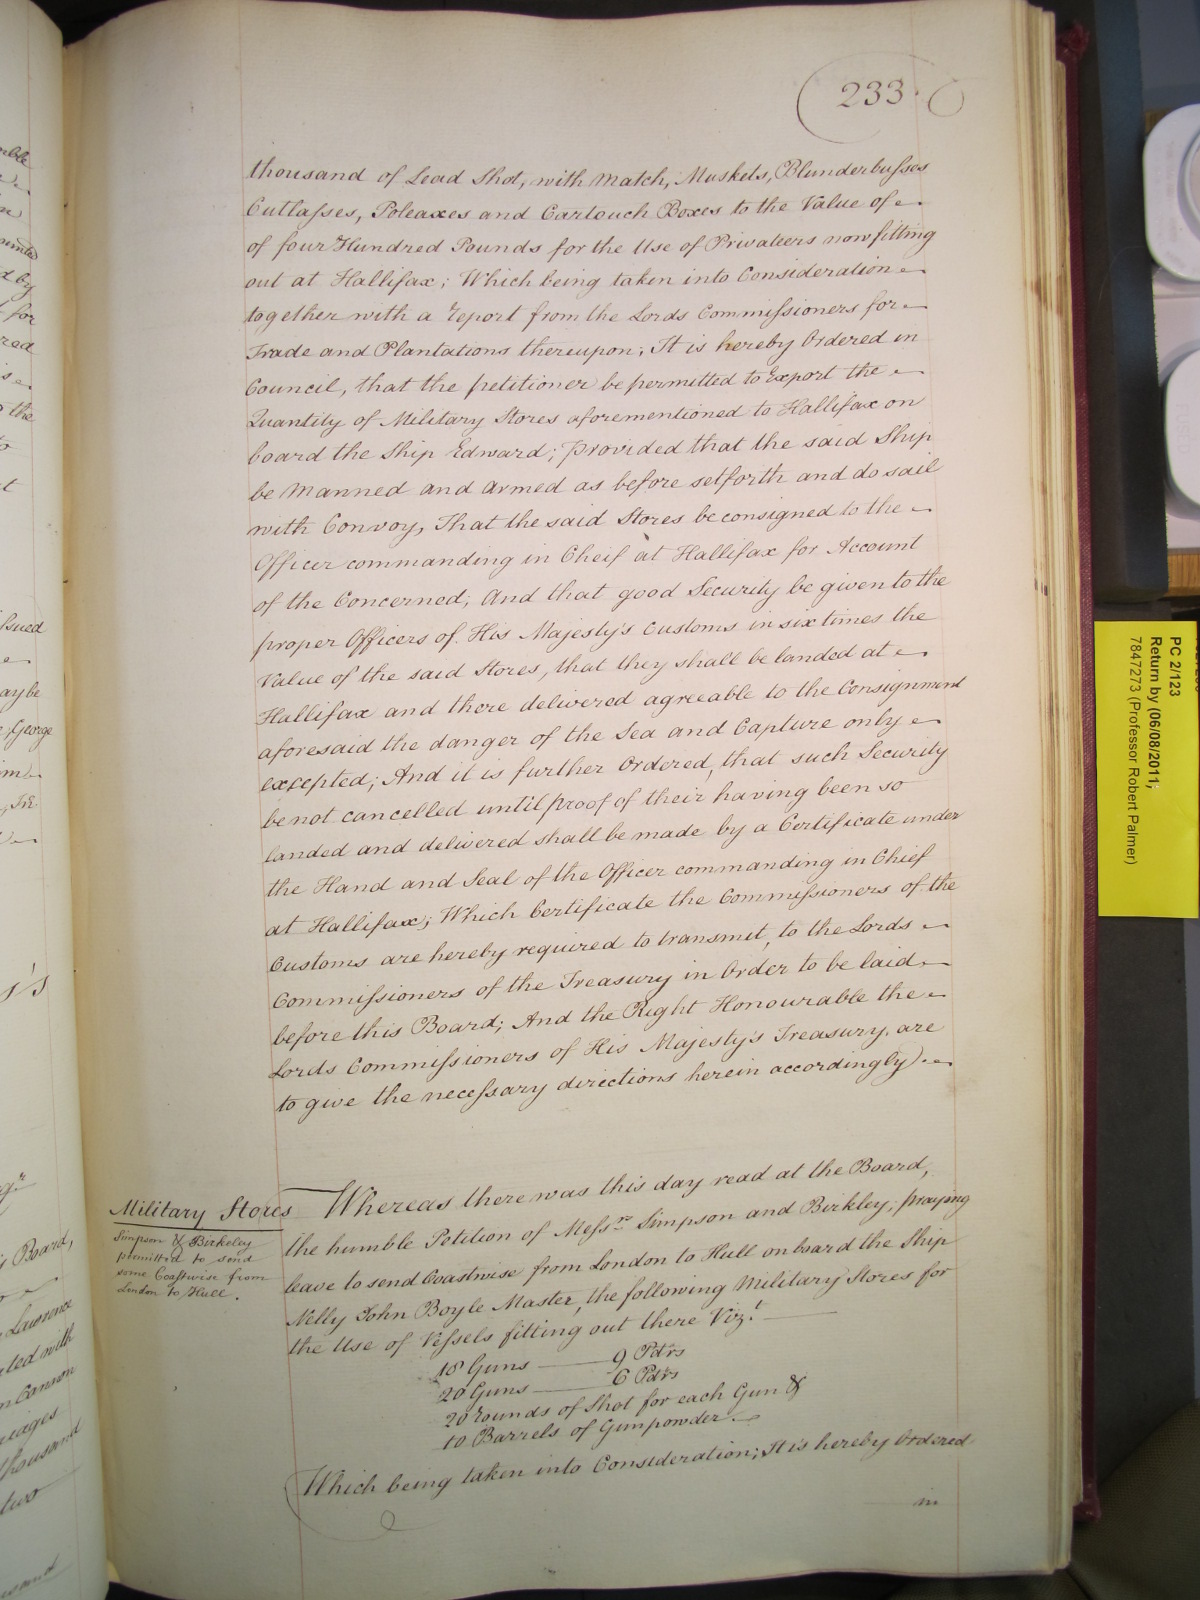 233.
thousand of Lead Shot, with Match, Muskets, Blunderbusses
Cutlasses, Poleaxes and Cartouch Boxes to the Value of
of four Hundred Pounds for the Use of Privateers now fitting
out at Hallifax; Which being taken into Consideration
together with a Report from the Lords Commissioners for
Trade and Plantations thereupon; It is hereby Ordered in
Council, that the petitioner be permitted to Export the
Quantity of Military Stores aforementioned to Hallifax on
board the Ship Edward; provided that the said Ship
be Manned and Armed as before setforth and do sail
with Convoy, That the said Stores be consigned to the
Officer commanding in Cheif at Hallifax for Account
of the Concerned; And that good Security be given to the
proper Officers of His Majesty's Customs in six times the
Value of the said Stores, that they shall be landed at
Hallifax and there delivered agreeable to the Consignment
aforesaid the danger of the Sea and Capture only
excepted; And it is further Ordered, that such Security
be not cancelled until proof of their having been so
landed and delivered shall be made by a Certificate under
the Hand and Seal of the Officer commanding in Chief
at Hallifax; Which Certificate the Commissioners of the
Customs are hereby required to transmit, to the Lords
Commissioners of the Treasury in Order to be laid
before this Board; And the Right Honourable the
Lords Commissioners of His Majesty's Treasury are
to give the necessary directions herein accordingly
Military Stores
Simpson & Birkeley
permitted to send
some Coastwise from
London to Hull.
Whereas there was this day read at the Board,
the humble Petition of Messrs Simpson and Birkley, praying
leave to send Coastwise from London to Hull on board the Ship
Nelly John Boyle Master, the following Military Stores for
the Use of Vessels fitting out there Vizt
18 Guns — 9 Pdrs
20 Guns — 6 Pdrs
20 rounds of Shot for each Gun &
10 Barrels of Gunpowder
Which being taken into Consideration; It is hereby Ordered
in
PC 2/123
Return by (06/08/2011;
7847273 (Professor Robert Palmer)